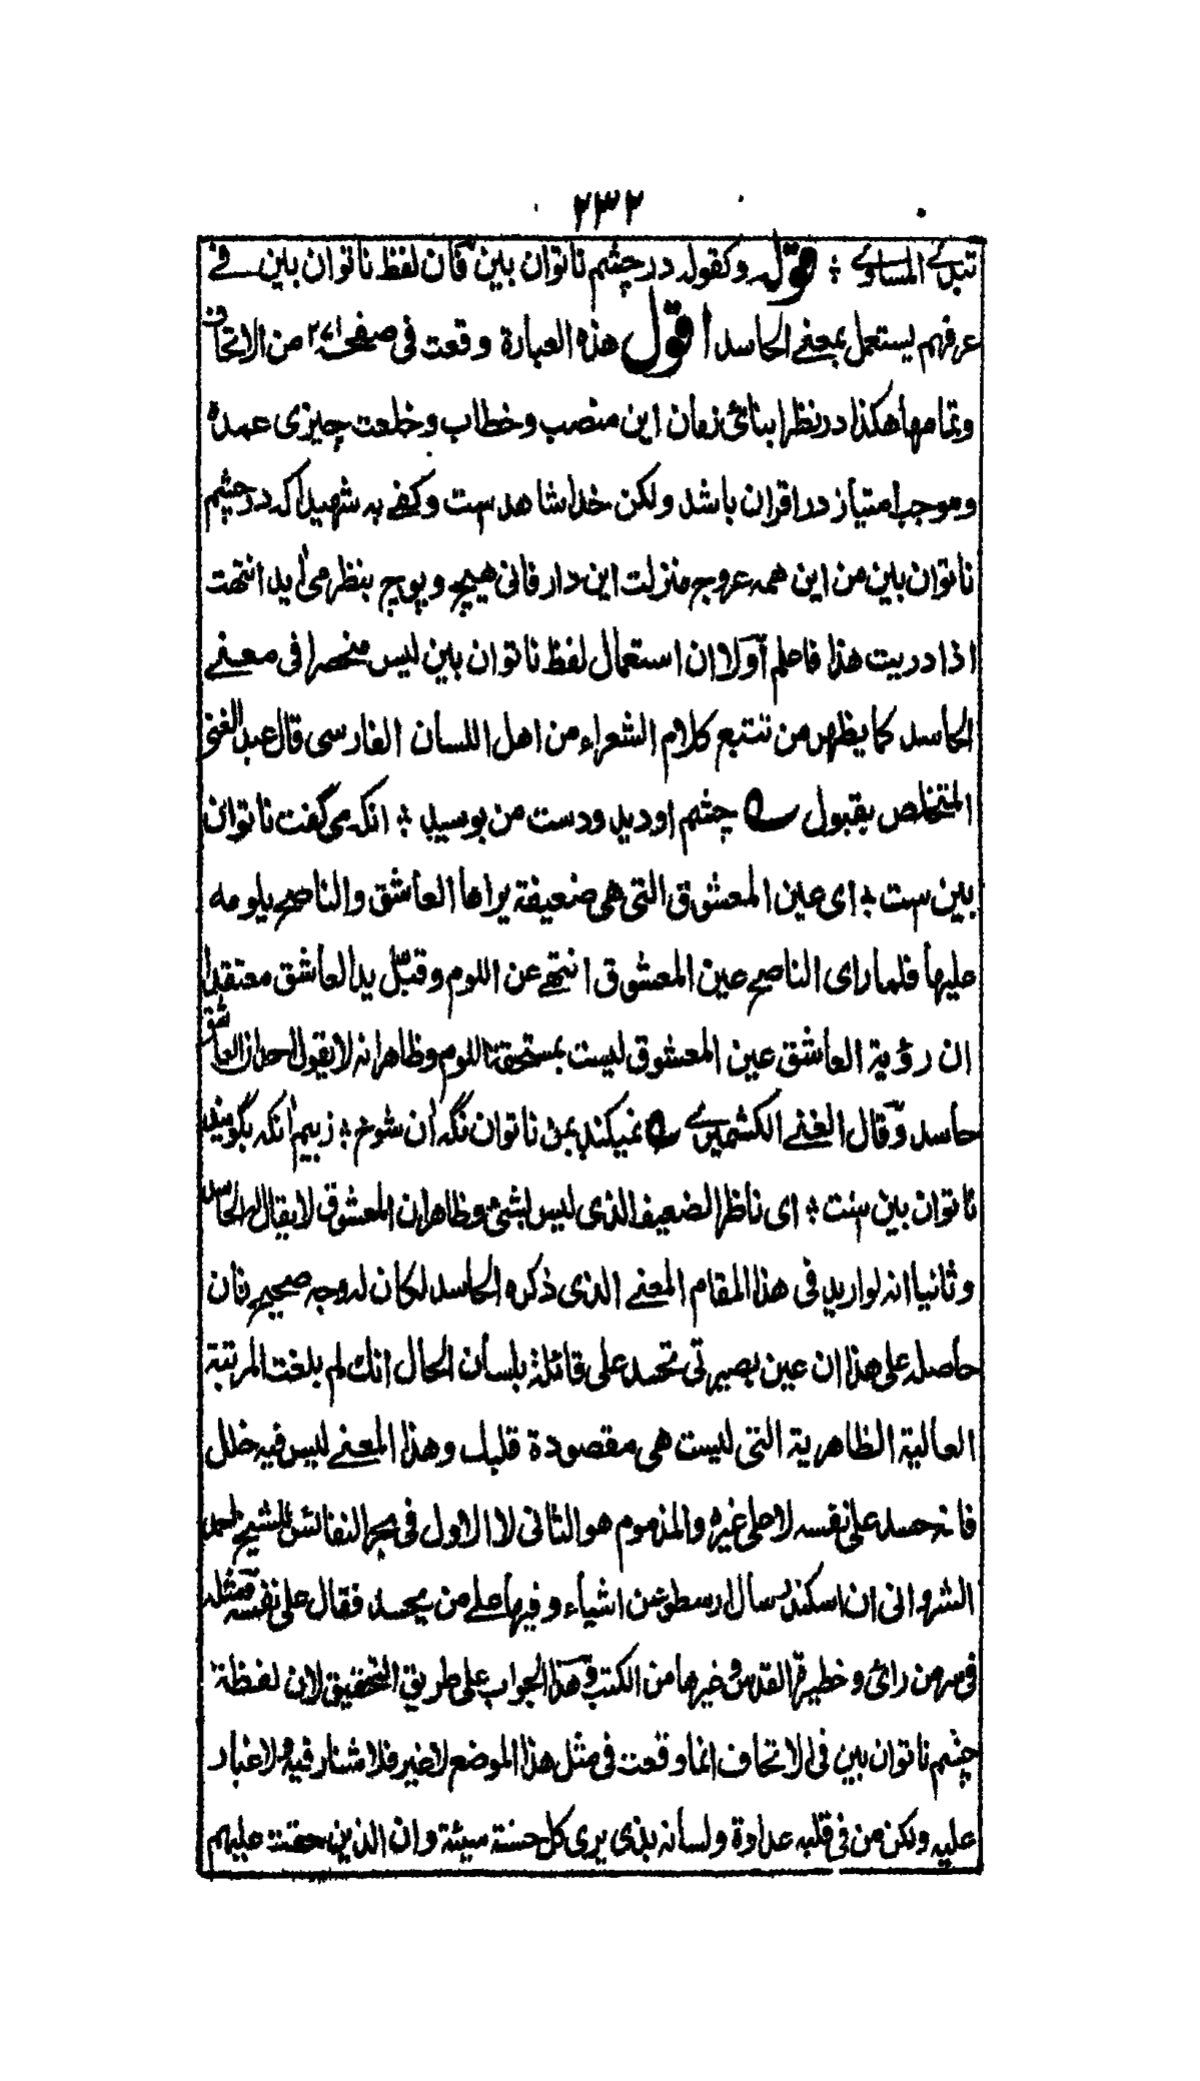 ٢٣٢
تبدی المساوی ؞ قوله وكقوله در چشم ناتوان بین فان لفظ ناتوان بین فے
عرفهم یستعمل بمعنے الحاسد اقول هذه العبارة وقعت فی صفحة ٢٧١ من الاتحاف
وتمامها هكذا در نظر ابنائ زمان این منصب وخطاب وخلعت چیزی عمدة
وموجب امتیاز در اقران باشد ولكن خدا شاهد ست وكفے به شهیدا كه در چشم
ناتوان بین من این همه عروج منزلت این دار فانی هیچ و پوچ بنظر می آید انتهت
اذا دریت هذا فاعلم اولا ان استعمال لفظ ناتوان بین لیس منحصرا فی معنے
الحاسد كما یظهر من تتبع كلام الشعراء من اهل اللسان الفارسی قال عبد الغنی
المتخلص بقبول ؎ چشم او دید ودست من بوسید ؞ انكه می گفت ناتوان
بین ست ؞ ای عین المعشوق التی هی ضعیفة یراها العاشق والناصح یلومه
علیها فلما رای الناصح عین المعشوق انتهے عن اللوم وقبّل ید العاشق معتقدا
ان رؤیة العاشق عین المعشوق لیست بمستحقة اللوم وظاهر انه لا یقول احد ان العاشق
حاسد وقال الغنے الكشمیرے ؎ نمیكند بمن ناتوان نگه آن شوخ ؞ زبیم آنكه بگویند
ناتوان بین ست ؞ ای ناظر الضعیف الذی لیس بشئ وظاهر ان المعشوق لا یقال له الحاسد
وثانیا انه لو ارید فی هذا المقام المعنے الذی ذكره الحاسد لكان له وجه صحیح فان
حاصله علی هذا ان عین بصیرتی تحسد علی قائلة بلسان الحال انك لم بلغت المرتبة
العالیة الظاهریة التی لیست هی مقصودة قلبك وهذا المعنے لیس فیه خلل
فانه حسد علی نفسه لا علی غیره والمذموم هو الثانی لا الاول فی بحر النفائس للشیخ احمد
الشروانی ان اسكندر سال ارسطو عن اشیاء وفیها علے من یحسد فقال علی نفسه ومثله
فی من رائ وخطیرة القدس وغیرها من الكتب وهذا الجواب علی طریق التحقیق لان لفظة
چشم ناتوان بین فی الاتحاف انما وقعت فی مثل هذا الموضع لا غیر فلا شنار فیه ولا غبار
علیه ولكن من فی قلبه عداوة ولسانه بذی یری كل حسنة سیئة وان الذین حقت علیهم